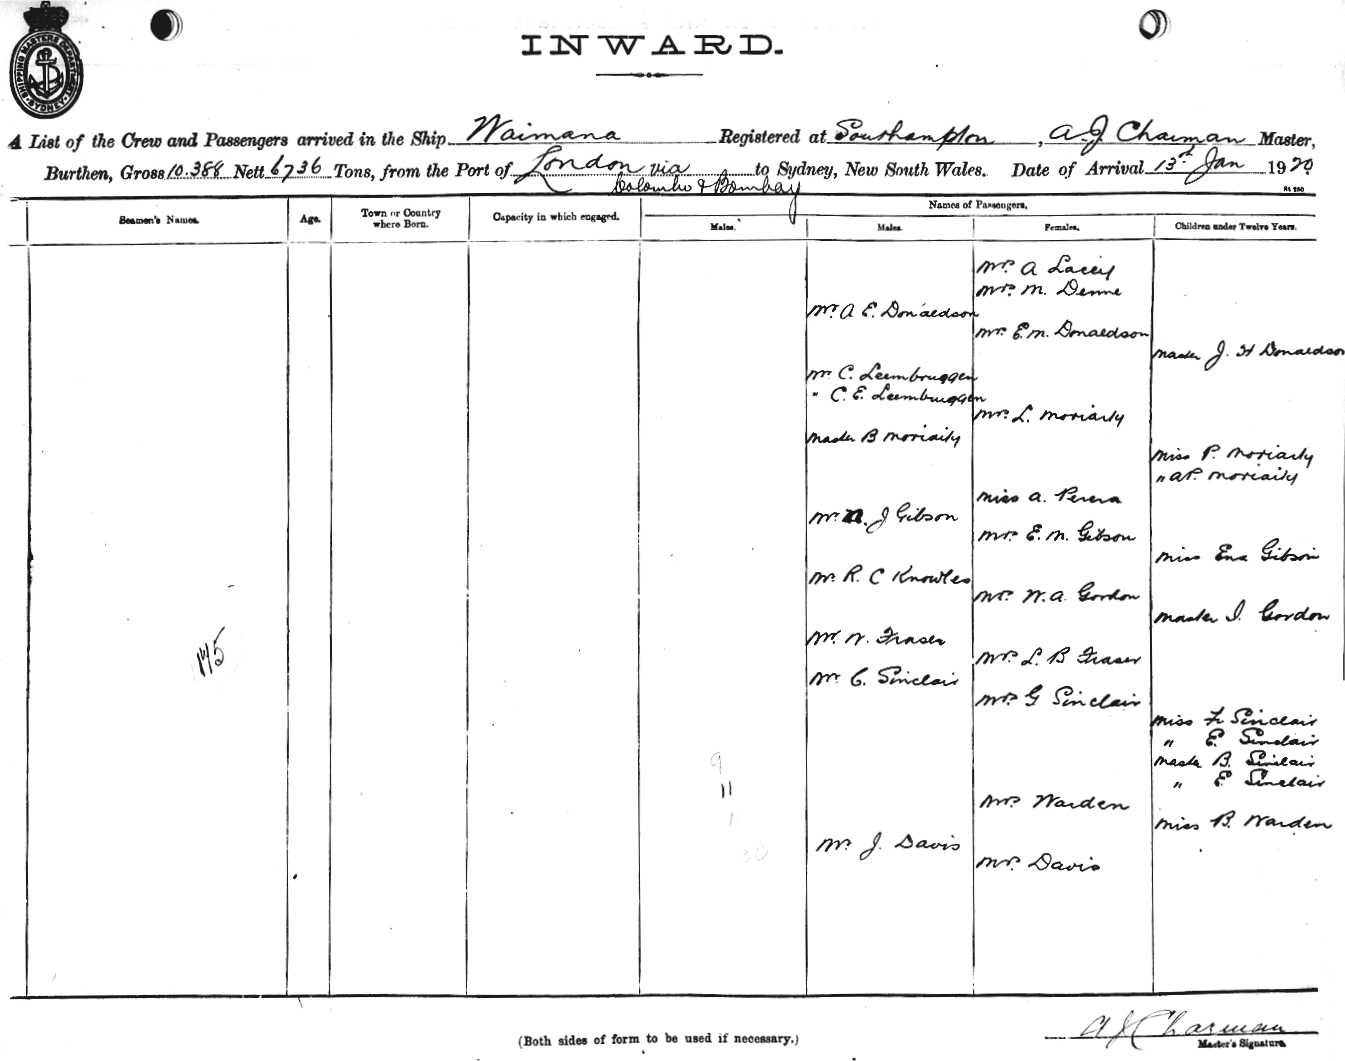 SHIPPING MASTERS DEPARTMENT SYDNEY
INWARD.
A List of the Crew and Passengers arrived in the Ship Waimana Registered at Southampton, A.J Charman Master,
Burthen, Gross 10.388 Nett 6736 Tons, from the Port of London via to Sydney, New South Wales. Date of Arrival 13th Jan 1920
Colombo & Bombay
Names of Passengers.
Seamen's Names. Age. Town or Country where Born. Capacity in which engaged. Males. Males. Females. Children under Twelve Years.
Mrs. A Lacey
Mrs. M. Denne
Mr. A E. Donaldson
Mrs. E.M. Donaldson
Master J. H Donaldson
Mr. C. Leembruggen
" C. E. Leembruggen
Mrs. L. Moriarty
Master B Moriarty
Miss P. Moriarty
" A P. Moriarty
Miss A. Perera
Mr. J Gibson
Mrs. E. M. Gibson
Miss Ena Gibson
Mr. R. C Knowles
Mrs. W. A. Gordon
Master I. Gordon
Mr. W. Fraser
145
Mrs. L. B Fraser
Mr. C. Sinclair
Mrs. G Sinclair
Miss F. Sinclair
" E. Sinclair
Master B. Sinclair
9
" E Sinclair
11
Mrs. Warden
1
Miss B. Warden
Mr. J. Davis
30
Mrs. Davis
(Both sides of form to be used if necessary.)
A J Charman
Master's Signature